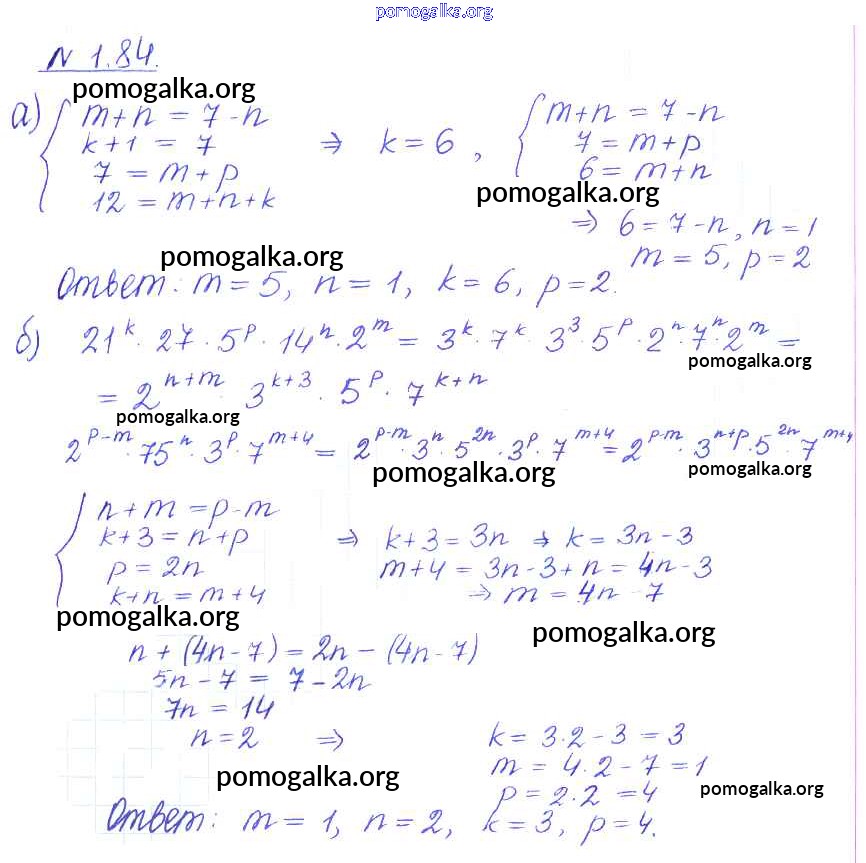 pomogalka.org
N 1.84.
pomogalka.org
а) { m+n = 7-n
k+1 = 7 ⇒ k=6,
7 = m+p
12 = m+n+k
{ m+n = 7-n
7 = m+p
6 = m+n
pomogalka.org
⇒ 6=7-n, n=1
m=5, p=2
pomogalka.org
Ответ: m=5, n=1, k=6, p=2.
б) 21^k · 27 · 5^p · 14^n · 2^m = 3^k · 7^k · 3^3 · 5^p · 2^n · 7^n · 2^m =
pomogalka.org
= 2^{n+m} · 3^{k+3} · 5^p · 7^{k+n}
pomogalka.org
2^{p-m} · 75^n · 3^p · 7^{m+4} = 2^{p-m} · 3^n · 5^{2n} · 3^p · 7^{m+4} = 2^{p-m} · 3^{n+p} · 5^{2n} · 7^{m+4}
pomogalka.org
pomogalka.org
{ n+m = p-m
k+3 = n+p ⇒ k+3 = 3n ⇒ k = 3n-3
p = 2n m+4 = 3n-3+n = 4n-3
k+n = m+4 ⇒ m = 4n-7
pomogalka.org
pomogalka.org
n+(4n-7) = 2n-(4n-7)
5n-7 = 7-2n
7n = 14
n=2 ⇒ k = 3·2-3 = 3
m = 4·2-7 = 1
pomogalka.org
p = 2·2 = 4
pomogalka.org
Ответ: m=1, n=2, k=3, p=4.